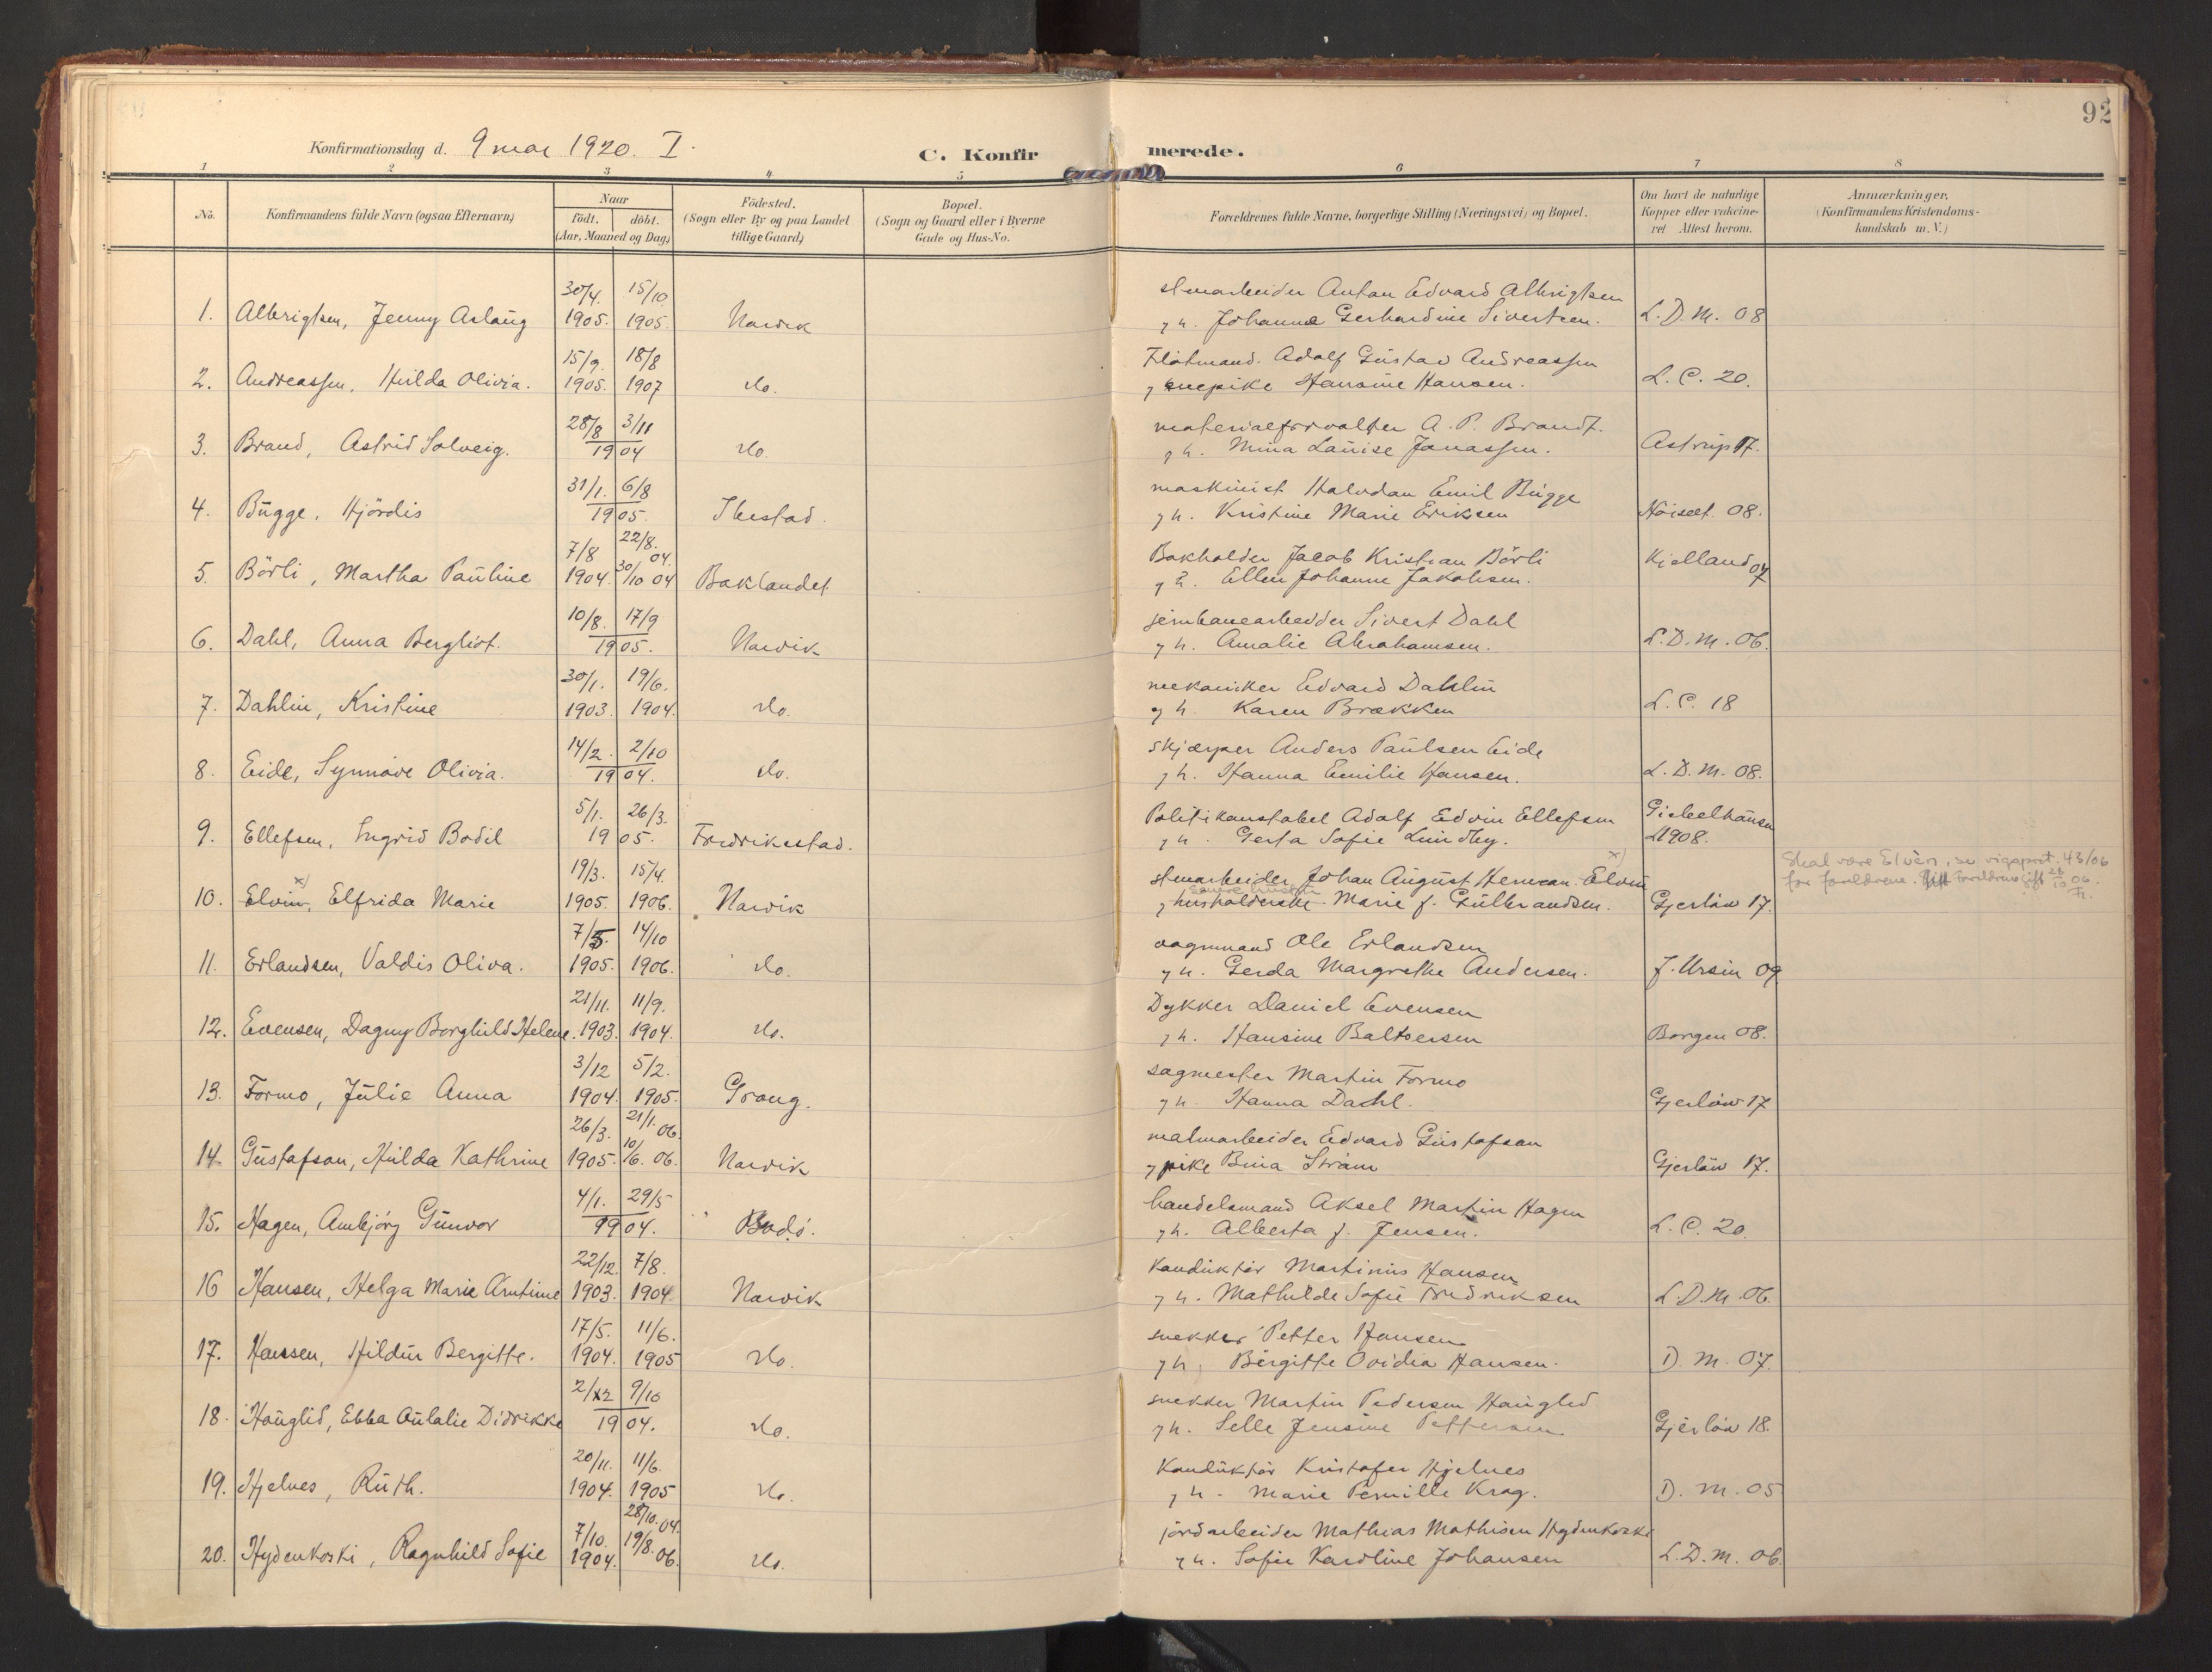 92
Konfirmationsdag d. 9 mai 1920. I.
C. Konfirmerede.
1 2 3 4 5 6 7 8
No.
Konfirmandens fulde Navn (ogsaa Efternavn)
Naar
födt. döbt.
(Aar, Maaned og Dag)
Födested.
(Sogn eller By og paa Landet
tillige Gaard)
Bopæl.
(Sogn og Gaard eller i Byerne
Gade og Hus-No.
Forældrenes fulde Navne, borgerlige Stilling (Næringsvei) og Bopæl.
Om havt de naturlige
Kopper eller vakcine-
ret Attest herom.
Anmærkninger.
(Konfirmandens Kristendoms-
kundskab m. V.)
30/4. 15/10. Anton Edvard Albrigtsen
1. Albrigtsen, Jenny Aslaug 1905. 1905. Narvik g h. Johanna Gerhardine Sivertsen. L. D. M. 08
15/9. 18/8 Adolf Gustav Andreassen
2. Andreassen, Hilda Olivia. 1905. 1907 do. g pike Hansine Hansen. L. C. 20.
28/8 3/11 materialforvalter A. P. Brandt.
3. Brand, Astrid Solveig. 1904 do. g h. Mina Lauise Jonassen. Astrup 17.
31/1. 6/8 maskinist Halvdan Emil Bugge
4. Bugge, Hjördis 1905. Ibestad. g h. Kristine Marie Eriksen 08.
7/8 22/8. 04. Bokholder Jacob Kristian Börli Kielland 07
5. Börli, Martha Pauline 1904. 30/10 04 Baklandet g h. Ellen Johanne Jakobsen.
10/8. 17/9 jernbanearbeider Sivert Dahl
6. Dahl, Anna Bergliot. 1905. Narvik g h. Amalie Abrahamsen. L. D. M. 06.
30/1. 19/6. mekaniker Edvard Dahlin
7. Dahlin, Kristine 1903. 1904. do. g h. Karen Brækken L. C. 18
14/2. 2/10 skjærper Anders Paulsen Eide
8. Eide, Synnöve Olivia. 1904. do. g h. Hanna Emilie Hansen. L. D. M. 08.
5/1. 26/3. Politikonstabel Adolf Edvin Ellefsen Giebelhausen
9. Ellefsen, Ingrid Bodil 1905. Fredrikstad. g h. Gerta Sofie Lundby. 1908.
19/3. 15/4. Johan August Herman Elvin x)
10. Elvin x), Elfrida Marie 1905. 1906. Narvik g husholderske Marie f. Gulbrandsen. Gjerlöw 17.
Skal være Elvèn, se vigsprot. 43/06
for foreldrene. Foreldrene gift 28/10 06.
7/5. 14/10 vognmand Ole Erlandsen
11. Erlandsen, Valdis Oliva. 1905. 1906. do. g h. Gerda Margrethe Andersen. J. Ursin 09
21/11. 11/9. Dykker Daniel Evensen
12. Evensen, Dagny Borghild Helene. 1903. 1904. do. g h. Hansine Baltsersen Borgen 08.
3/12 5/2. sagmester Martin Formo
13. Formo, Julie Anna 1904. 1905. Grong. g h. Hanna Dahl. Gjerlöw 17
26/3. 21/1. 06. malmarbeider Edvard Gustafson
14. Gustafson, Hilda Kathrine 1905. 10/6. 06. Narvik g pike Bina Ström Gjerlöw 17.
4/1. 29/5 handelsmand Aksel Martin Hagen
15. Hagen, Ambjörg Gunvor 1904. Bodö. g h. Alberta f. Jensen. L. C. 20.
22/12. 7/8. Konduktör Martinius Hansen
16 Hansen, Helga Marie Arntine 1903. 1904 Narvik g h. Mathilde Sofie Fredriksen L. D. M. 06.
17/5. 11/6. snekker Petter Hansen
17. Hansen, Hildur Bergitte. 1904. 1905 do. g h. Bergitte Ovidia Hansen. D. M. 07.
2/12 9/10 snekker Martin Pedersen Hauglid
18. Hauglid, Ebba Aulalie Didrikke 1904. do. g h. Selle Jensine Pettersen Gjerlöw 18.
20/11. 11/6. Konduktör Kristofer Hjelnes
19. Hjelnes, Ruth. 1904. 1905 do. g h. Marie Pernille Krog. D. M. 05
7/10. 28/10. 04. jordarbeider Mathias Mathisen Hydenkoski
20. Hydenkoski, Ragnhild Sofie 1904. 19/8. 06. do. g h. Sofie Karoline Johansen L. D. M. 06.